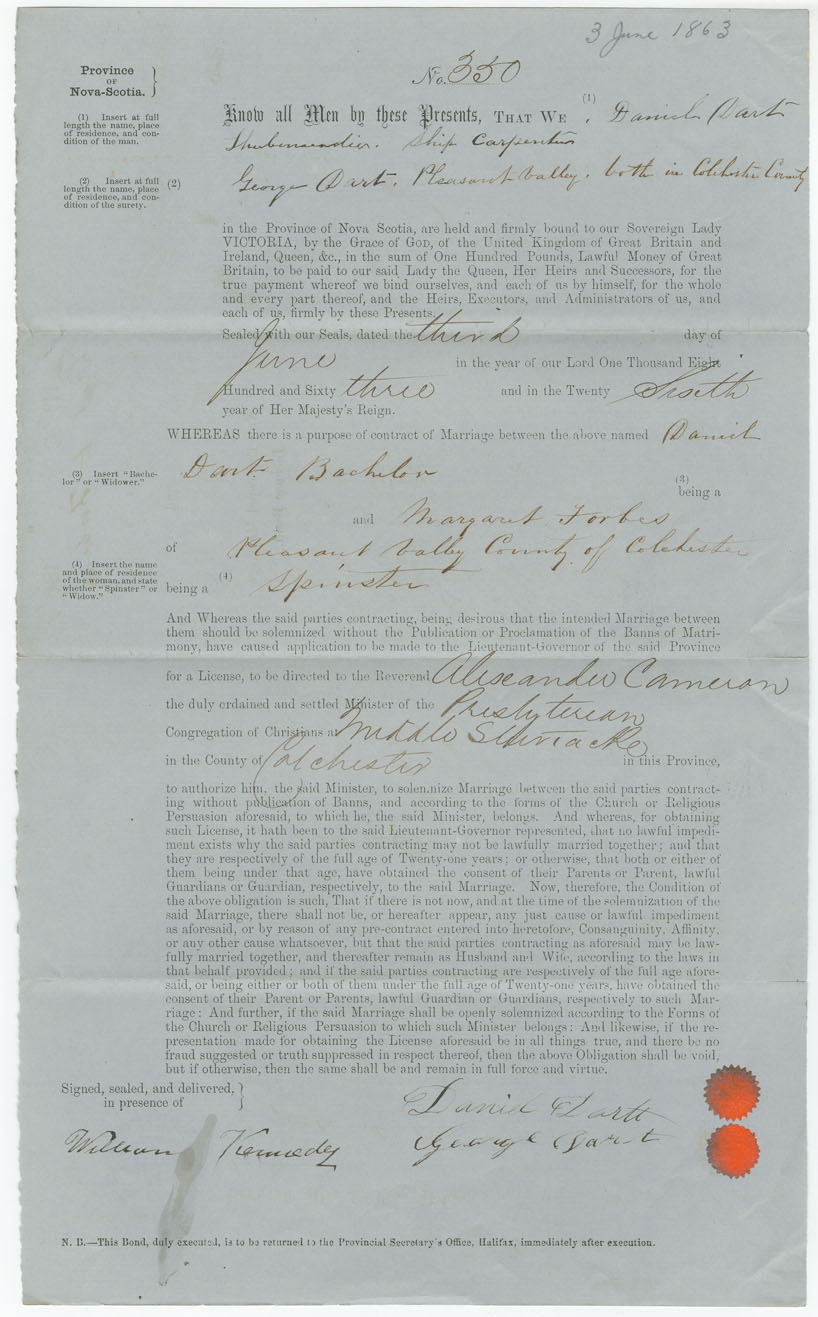 3 June 1863
Province
OF
Nova-Scotia.
No. 350
(1) Insert at full
length the name, place
of residence, and con-
dition of the man.
Know all Men by these Presents, THAT WE (1), Daniel Dart
Shubenacadie. Ship Carpenter
(2) Insert at full
length the name, place
of residence, and con-
dition of the surety.
(2) George Dart. Pleasant Valley. both in Colchester County
in the Province of Nova Scotia, are held and firmly bound to our Sovereign Lady
VICTORIA, by the Grace of GOD, of the United Kingdom of Great Britain and
Ireland, Queen, &c., in the sum of One Hundred Pounds, Lawful Money of Great
Britain, to be paid to our said Lady the Queen, Her Heirs and Successors, for the
true payment whereof we bind ourselves, and each of us by himself, for the whole
and every part thereof, and the Heirs, Executors, and Administrators of us, and
each of us, firmly by these Presents.
Sealed with our Seals, dated the third day of
June in the year of our Lord One Thousand Eight
Hundred and Sixty three and in the Twenty Sixth
year of Her Majesty's Reign.
WHEREAS there is a purpose of contract of Marriage between the above named Daniel
(3) Insert "Bache-
lor" or "Widower."
Dart Bachelor
(3)
being a
and Margaret Forbes
of Pleasant Valley County of Colchester
(4) Insert the name
and place of residence
of the woman, and state
whether "Spinster" or
"Widow."
being a (4) Spinster
And Whereas the said parties contracting, being desirous that the intended Marriage between
them should be solemnized without the Publication or Proclamation of the Banns of Matri-
mony, have caused application to be made to the Lieutenant-Governor of the said Province
for a License, to be directed to the Reverend Alexander Cameron
the duly ordained and settled Minister of the Presbyterian
Congregation of Christians at Middle Stewiacke
in the County of Colchester in this Province,
to authorize him, the said Minister, to solemnize Marriage between the said parties contract-
ing without publication of Banns, and according to the forms of the Church or Religious
Persuasion aforesaid, to which he, the said Minister, belongs. And whereas, for obtaining
such License, it hath been to the said Lieutenant-Governor represented, that no lawful impedi-
ment exists why the said parties contracting may not be lawfully married together; and that
they are respectively of the full age of Twenty-one years; or otherwise, that both or either of
them being under that age, have obtained the consent of their Parents or Parent, lawful
Guardians or Guardian, respectively, to the said Marriage. Now, therefore, the Condition of
the above obligation is such, That if there is not now, and at the time of the solemnization of the
said Marriage, there shall not be, or hereafter appear, any just cause or lawful impediment
as aforesaid, or by reason of any pre-contract entered into heretofore, Consanguinity, Affinity,
or any other cause whatsoever, but that the said parties contracting as aforesaid may be law-
fully married together, and thereafter remain as Husband and Wife, according to the laws in
that behalf provided; and if the said parties contracting are respectively of the full age afore-
said, or being either or both of them under the full age of Twenty-one years, have obtained the
consent of their Parent or Parents, lawful Guardian or Guardians, respectively to such Mar-
riage: And further, if the said Marriage shall be openly solemnized according to the Forms of
the Church or Religious Persuasion to which such Minister belongs: And likewise, if the re-
presentation made for obtaining the License aforesaid be in all things true, and there be no
fraud suggested or truth suppressed in respect thereof, then the above Obligation shall be void,
but if otherwise, then the same shall be and remain in full force and virtue.
Signed, sealed, and delivered,
in presence of
Daniel Dartt
William Kennedy George Dart
N. B.—This Bond, duly executed, is to be returned to the Provincial Secretary's Office, Halifax, immediately after execution.